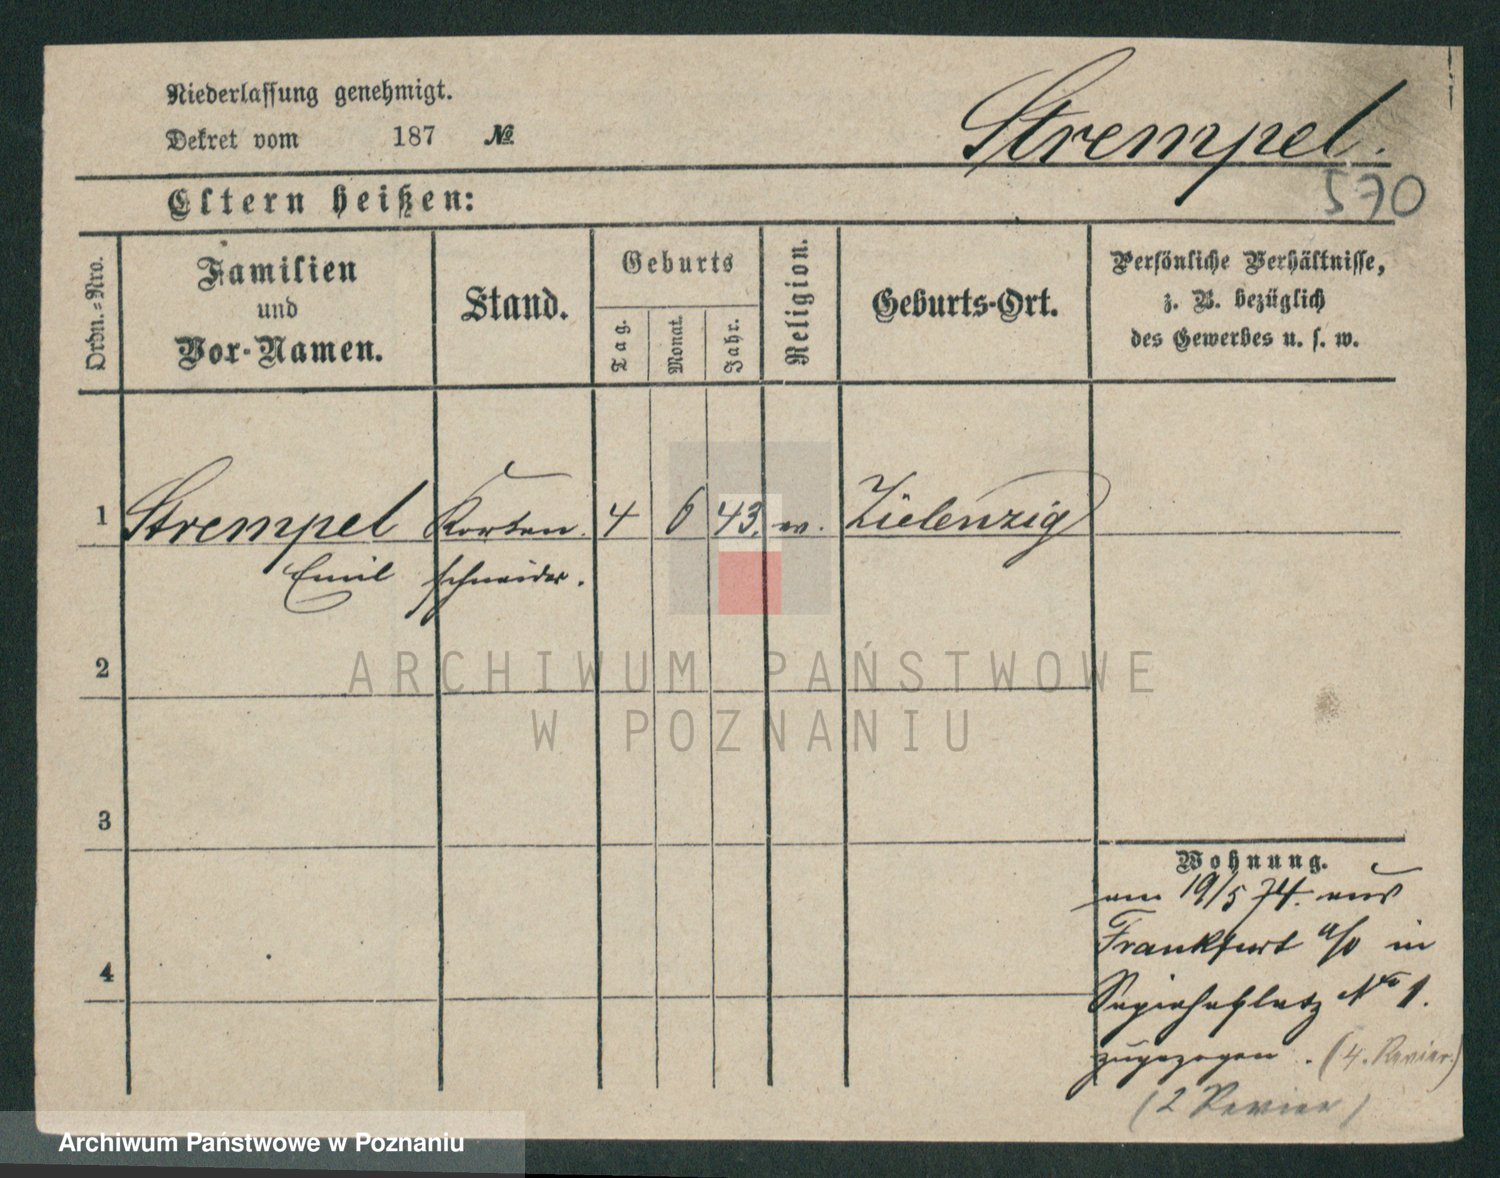 Niederlassung genehmigt.
Dekret vom 187 №
Strempel.
570
Eltern heißen:
Ordn.-Nro.
Familien
und
Vor-Namen.
Stand.
Geburts
Tag.
Monat.
Jahr.
Religion.
Geburts-Ort.
Persönliche Verhältnisse,
z. B. bezüglich
des Gewerbes u. s. w.
1 Strempel 4 6 43. Zielenzig
Emil schneider.
2
3
4
Wohnung.
am 19/5 74. aus
Frankfurt a/o in
Sapiehaplatz No 1.
zugezogen. (4. Revier)
(2 Revier)
ARCHIWUM PAŃSTWOWE
W POZNANIU
Archiwum Państwowe w Poznaniu